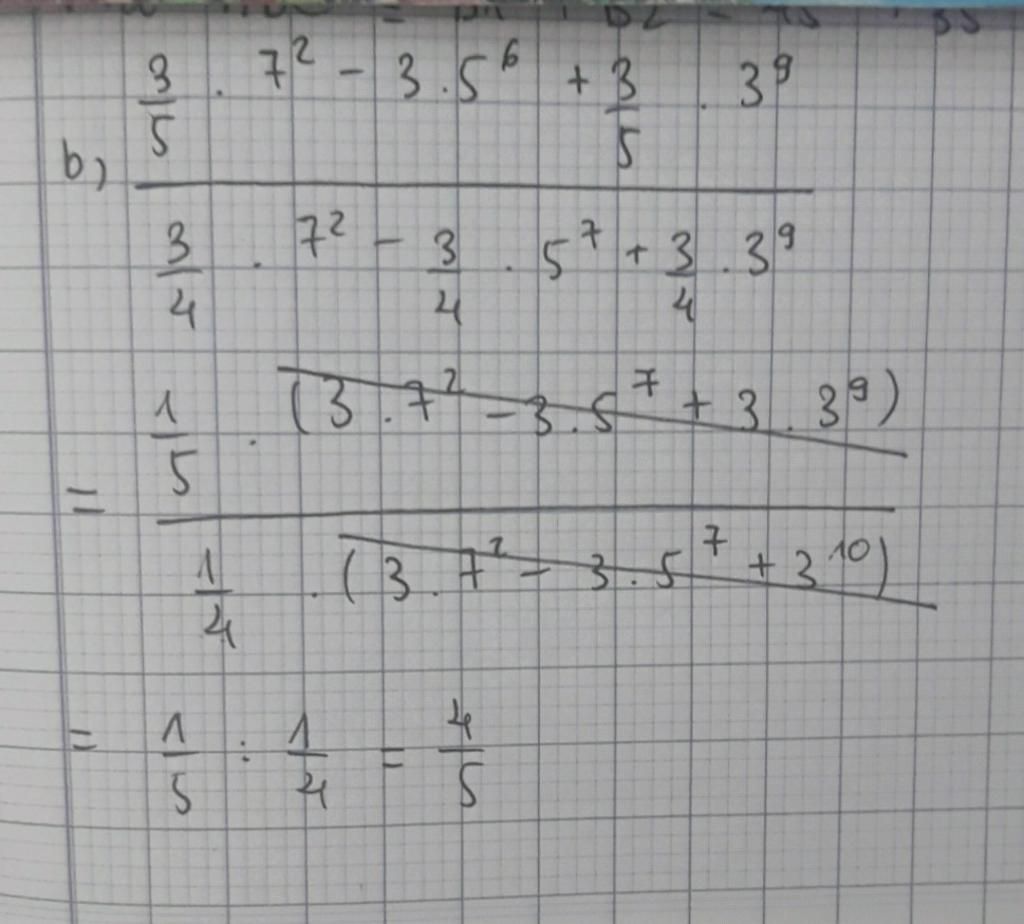 b) \frac{\frac{3}{5} . 7^2 - 3 . 5^6 + \frac{3}{5} . 3^9}{\frac{3}{4} . 7^2 - \frac{3}{4} . 5^7 + \frac{3}{4} . 3^9}
= \frac{\frac{1}{5} . (3 . 7^2 - 3 . 5^7 + 3 . 3^9)}{\frac{1}{4} . (3 . 7^2 - 3 . 5^7 + 3^{10})}
= \frac{1}{5} : \frac{1}{4} = \frac{4}{5}